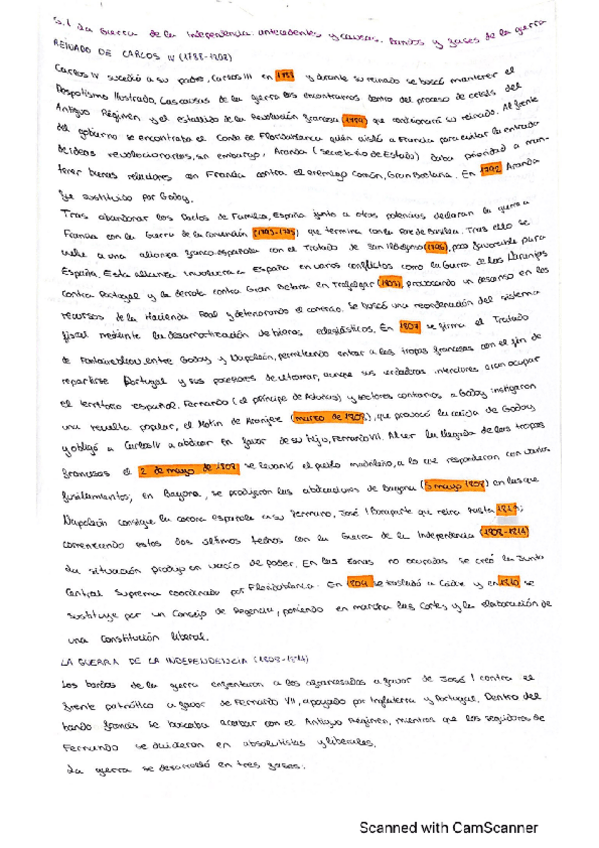 5.1 La Guerra de la Independencia: antecedentes y causas. Bandos y fases de la guerra
REINADO DE CARLOS IV (1788-1808)
Carlos IV sucedió a su padre, Carlos III en 1788 y durante su reinado se buscó mantener el
Despotismo Ilustrado. Las causas de la guerra las encontramos dentro del proceso de crisis del
Antiguo Régimen y el estallido de la Revolución francesa (1789) que condicionará su reinado. Al frente
del gobierno se encontraba el Conde de Floridablanca quién aisló a Francia para evitar la entrada
de ideas revolucionarias, sin embargo, Aranda (secretario de Estado) daba prioridad a man-
tener buenas relaciones con Francia contra el enemigo común, Gran Bretaña. En 1792 Aranda
fue sustituido por Godoy.
Tras abandonar los Pactos de Familia, España junto a otras potencias declaran la guerra a
Francia con la Guerra de la Convención (1793-1795) que termina con la Paz de Basilea. Tras ello se
vuelve a una alianza franco-española con el Tratado de San Ildefonso (1796), poco favorable para
España. Esta alianza involucra a España en varios conflictos como la Guerra de las Naranjas
contra Portugal y la derrota contra Gran Bretaña en Trafalgar (1805), provocando un descenso en los
recursos de la Hacienda Real y deteriorando el comercio. Se buscó una reordenación del sistema
fiscal mediante la desamortización de bienes eclesiásticos. En 1807 se firma el Tratado
de Fontainebleau entre Godoy y Napoleón, permitiendo entrar a las tropas francesas con el fin de
repartirse Portugal y sus posesiones de ultramar, aunque sus verdaderas intenciones eran ocupar
el territorio español. Fernando (el príncipe de Asturias) y sectores contrarios a Godoy instigaron
una revuelta popular, el Motín de Aranjuez (marzo de 1808), que provocó la caída de Godoy
y obligó a Carlos IV a abdicar en favor de su hijo, Fernando VII. Al ver la llegada de las tropas
francesas el 2 de mayo de 1808 se levantó el pueblo madrileño, a lo que respondieron con varios
fusilamientos; en Bayona, se produjeron las abdicaciones de Bayona (5 mayo 1808) en las que
Napoleón consigue la corona española a su hermano, José I Bonaparte que reina hasta
comenzando estos dos últimos hechos con la Guerra de la Independencia (1808-1814)
La situación produjo un vacío de poder. En las zonas no ocupadas se creó la Junta
Central Suprema coordinada por Floridablanca. En se trasladó a Cádiz y en 1810 se
sustituye por un Consejo de Regencia, poniendo en marcha las Cortes y la elaboración de
una constitución liberal.
LA GUERRA DE LA INDEPENDENCIA (1808-1814)
Los bandos de la guerra enfrentaron a los afrancesados a favor de José I contra el
frente patriótico a favor de Fernando VII, apoyado por Inglaterra y Portugal. Dentro del
bando francés se buscaba acabar con el Antiguo Régimen, mientras que los seguidores de
Fernando se dividieron en absolutistas y liberales.
La guerra se desarrolló en tres fases.
Scanned with CamScanner